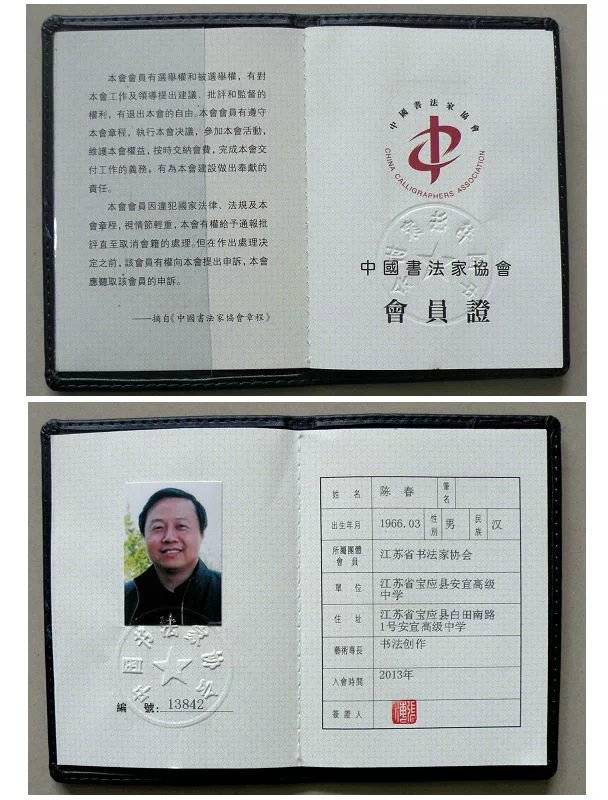 本會會員有選舉權和被選舉權，有對
本會工作及領導提出建議、批評和監督的
權利，有退出本會的自由。本會會員有遵守
本會章程，執行本會決議，參加本會活動，
維護本會權益，按時交納會費，完成本會交
付工作的義務。有為本會建設做出奉獻的
責任。
本會會員因違犯國家法律、法規及本
會章程，視情節輕重，本會有權給予通報批
評直至取消會籍的處理。但在作出處理決
定之前，該會員有權向本會提出申訴，本會
應聽取該會員的申訴。
——摘自《中國書法家協會章程》
中國書法家協會
CHINA CALLIGRAPHERS ASSOCIATION
中國書法家協會
會員證
編 號：13842
姓 名 陈 春 筆名
出生年月 1966.03 性別 男 民族 汉
所屬團體會員 江苏省书法家协会
單 位 江苏省宝应县安宜高级
中学
住 址 江苏省宝应县白田南路
1号安宜高级中学
藝術專長 书法创作
入會時間 2013年
簽證人